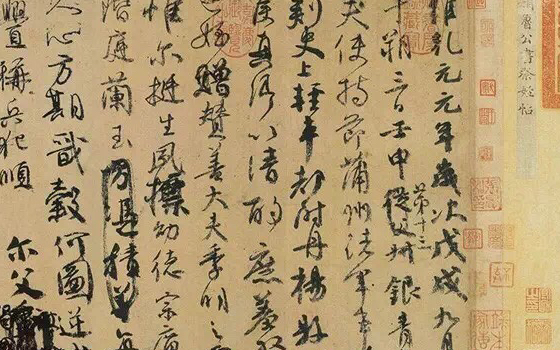 魯公書祭姪帖
維乾元元年歲次戊戌九月
午朔三日壬申第十三銀青
夫使持節蒲州諸軍事
刺史上輕車都尉丹楊縣
侯真卿以清酌庶羞
姪贈贊善大夫季明之
惟爾挺生夙標幼德宗廟
階庭蘭玉方憑積善每
人心方期戩穀何圖逆賊
釁稱兵犯順爾父